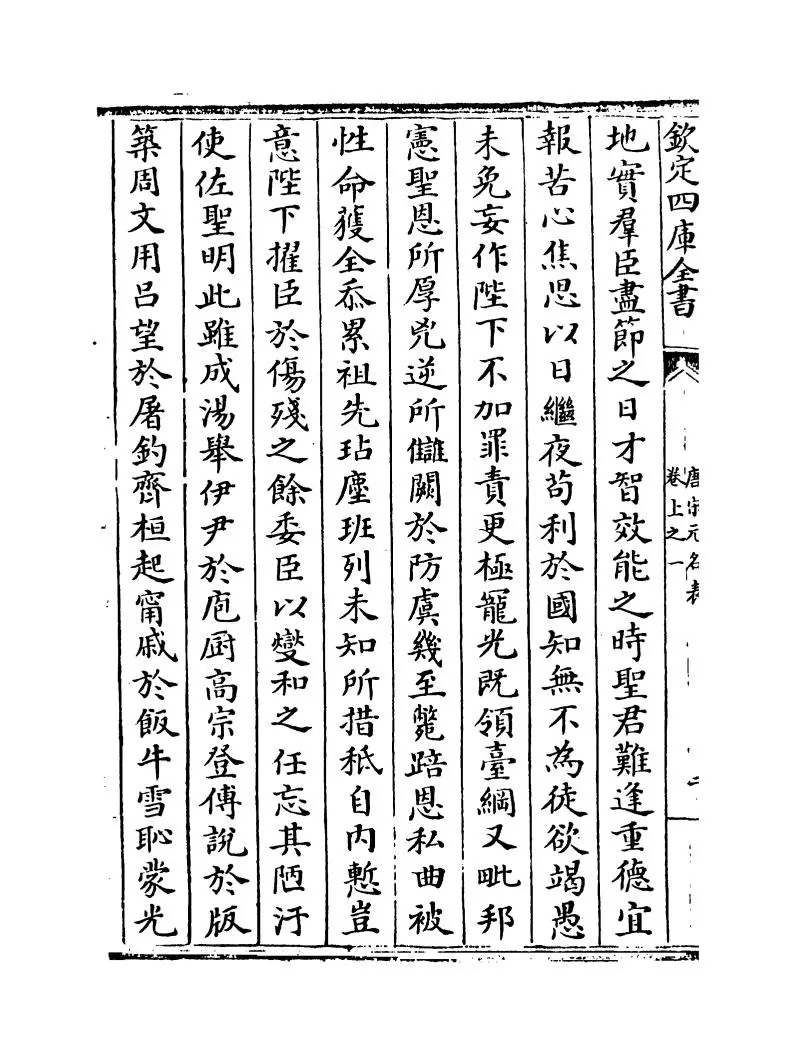 欽定四庫全書
唐宋元名表
卷上之一
地實羣臣盡節之日才智效能之時聖君難逢重德宜
報苦心焦思以日繼夜苟利於國知無不為徒欲竭愚
未免妄作陛下不加罪責更極寵光既領臺綱又毗邦
憲聖恩所厚兇逆所讎闕於防虞幾至斃踣恩私曲被
性命獲全忝累祖先玷塵班列未知所措秖自内慙豈
意陛下擢臣於傷殘之餘委臣以燮和之任忘其陋汙
使佐聖明此雖成湯舉伊尹於庖厨高宗登傅說於版
築周文用吕望於屠釣齊桓起甯戚於飯牛雪恥蒙光